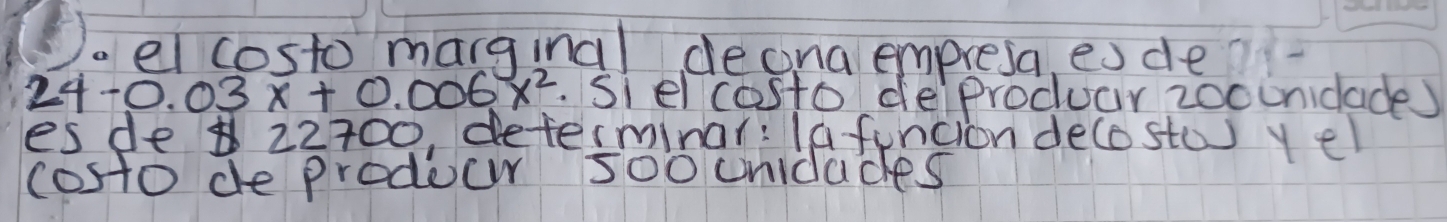 . el costo marginal de una empresa, es de
24-0.03x + 0.006x². Si el costo de producir 200 unidades
es de $ 22700, determinar: la función de costos y el
costo de producir 500 unidades